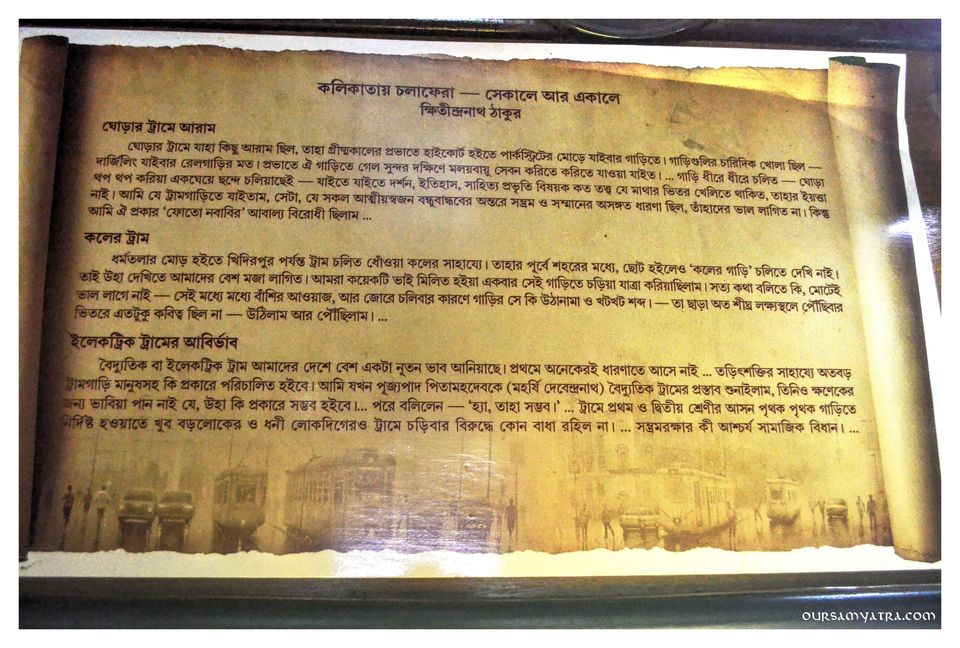 কলিকাতায় চলাফেরা — সেকালে আর একালে
ক্ষিতীন্দ্রনাথ ঠাকুর
ঘোড়ার ট্রামে আরাম
ঘোড়ার ট্রামে যাহা কিছু আরাম ছিল, তাহা গ্রীষ্মকালের প্রভাতে হাইকোর্ট হইতে পার্কস্ট্রিটের মোড়ে যাইবার গাড়িতে। গাড়িগুলির চারিদিক খোলা ছিল —
দার্জিলিং যাইবার রেলগাড়ির মত। প্রভাতে ঐ গাড়িতে গেল সুন্দর দক্ষিণে মলয়বায়ু সেবন করিতে করিতে যাওয়া যাইত। ... গাড়ি ধীরে ধীরে চলিত — ঘোড়া
থপ থপ করিয়া একঘেয়ে ছন্দে চলিয়াছেই — যাইতে যাইতে দর্শন, ইতিহাস, সাহিত্য প্রভৃতি বিষয়ক কত তত্ত্ব যে মাথার ভিতর খেলিতে থাকিত, তাহার ইয়ত্তা
নাই। আমি যে ট্রামগাড়িতে যাইতাম, সেটা, যে সকল আত্মীয়স্বজন বন্ধুবান্ধবের অন্তরে সম্ভ্রম ও সম্মানের অসঙ্গত ধারণা ছিল, তাঁহাদের ভাল লাগিত না। কিন্তু
আমি ঐ প্রকার ‘ফোতো নবাবির’ আবাল্য বিরোধী ছিলাম ...
কলের ট্রাম
ধর্মতলার মোড় হইতে খিদিরপুর পর্যন্ত ট্রাম চলিত ধোঁওয়া কলের সাহায্যে। তাহার পূর্বে শহরের মধ্যে, ছোট হইলেও ‘কলের গাড়ি’ চলিতে দেখি নাই।
তাই উহা দেখিতে আমাদের বেশ মজা লাগিত। আমরা কয়েকটি ভাই মিলিত হইয়া একবার সেই গাড়িতে চড়িয়া যাত্রা করিয়াছিলাম। সত্য কথা বলিতে কি, মোটেই
ভাল লাগে নাই — সেই মধ্যে মধ্যে বাঁশির আওয়াজ, আর জোরে চলিবার কারণে গাড়ির সে কি উঠানামা ও খটখট শব্দ। — তা ছাড়া অত শীঘ্র লক্ষ্যস্থলে পৌঁছিবার
ভিতরে এতটুকু কবিত্ব ছিল না — উঠিলাম আর পৌঁছিলাম। ...
ইলেকট্রিক ট্রামের আবির্ভাব
বৈদ্যুতিক বা ইলেকট্রিক ট্রাম আমাদের দেশে বেশ একটা নূতন ভাব আনিয়াছে। প্রথমে অনেকেরই ধারণাতে আসে নাই ... তড়িৎশক্তির সাহায্যে অতবড়
ট্রামগাড়ি মানুষসহ কি প্রকারে পরিচালিত হইবে। আমি যখন পূজ্যপাদ পিতামহদেবকে (মহর্ষি দেবেন্দ্রনাথ) বৈদ্যুতিক ট্রামের প্রস্তাব শুনাইলাম, তিনিও ক্ষণেকের
জন্য ভাবিয়া পান নাই যে, উহা কি প্রকারে সম্ভব হইবে।... পরে বলিলেন — ‘হ্যা, তাহা সম্ভব।’ ... ট্রামে প্রথম ও দ্বিতীয় শ্রেণীর আসন পৃথক পৃথক গাড়িতে
নির্দিষ্ট হওয়াতে খুব বড়লোকের ও ধনী লোকদিগেরও ট্রামে চড়িবার বিরুদ্ধে কোন বাধা রহিল না। ... সম্ভ্রমরক্ষার কী আশ্চর্য সামাজিক বিধান। ...
OURSAMYATRA.COM